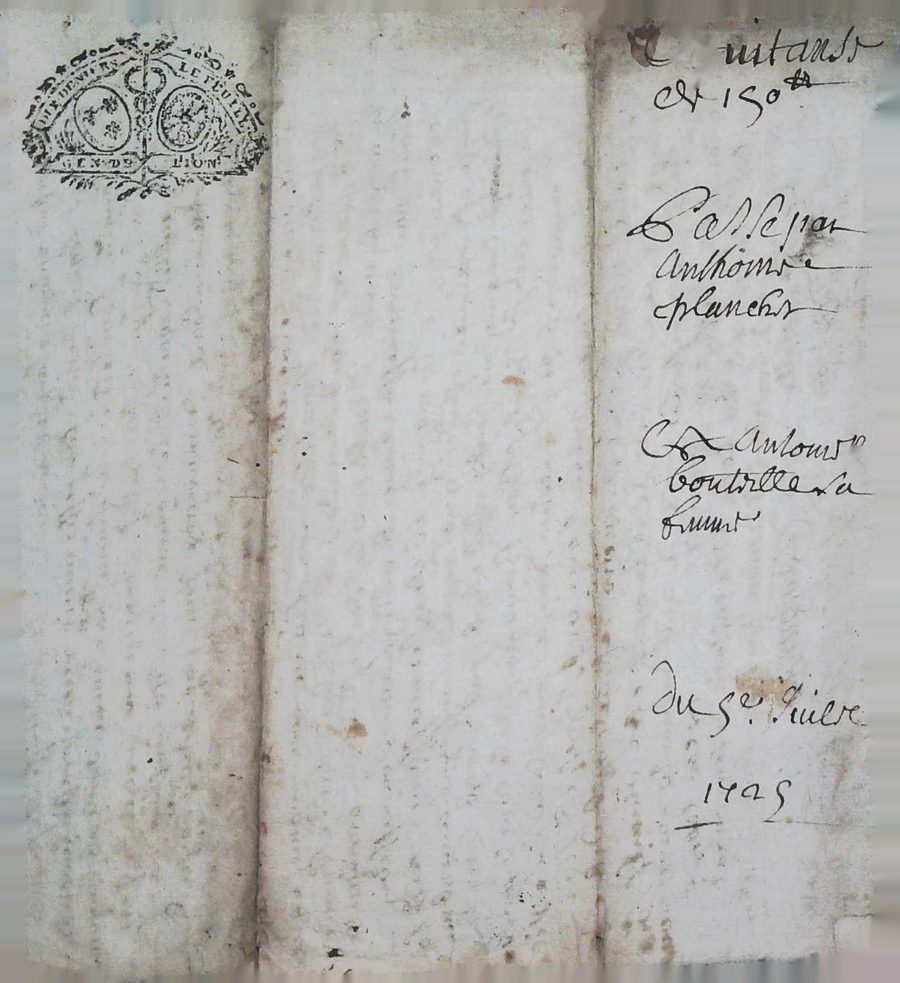 DIX DENIERS LE FEUILL
GEN DE LION
Quitanse
de 150 ₶
Passe par
Anthoine
planchet
Et Antoine
bouteille sa
femme
du 5e. Juilet
1725